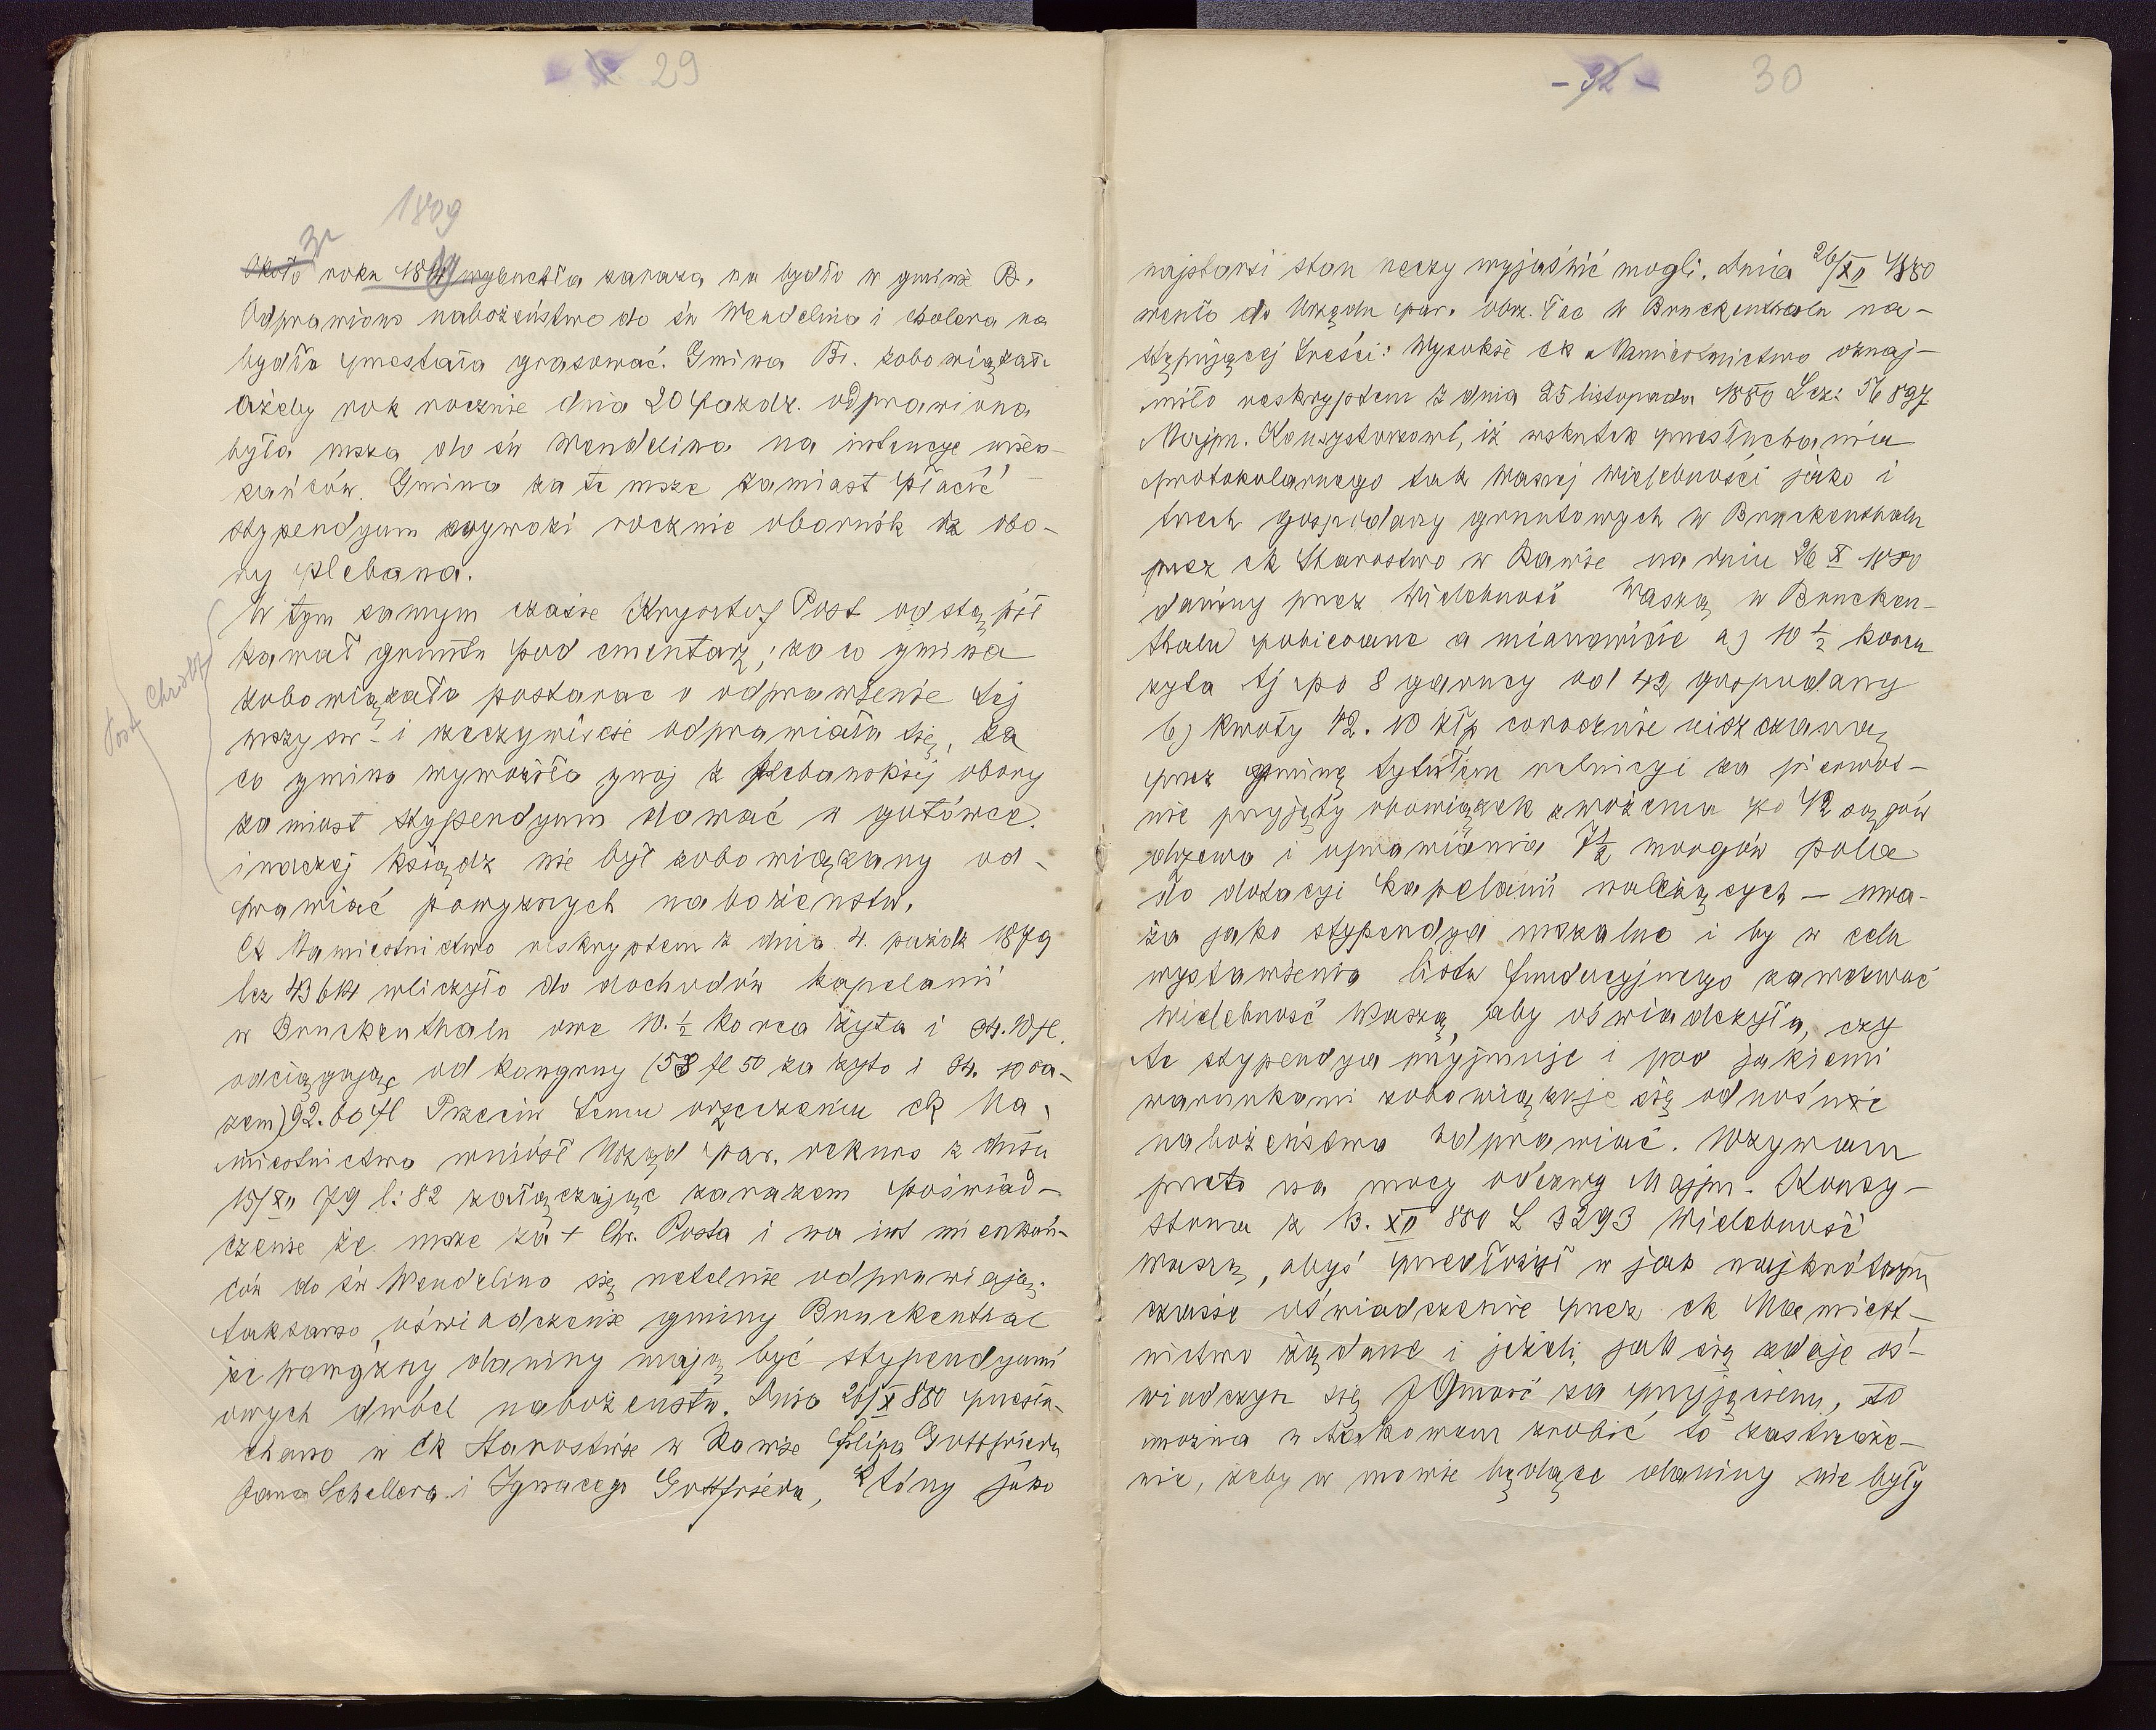 29
1809
Około roku 18 wybuchła zaraza na bydło w gminie B.
Odprawiono nabożeństwo do św Wendelina i cholera na
bydło przestała grasować. Gmina Br. zobowiązała
ażeby rok rocznie dnia 20 Paźdz. odprawiona
była msza do św Wendelina na intencyę miesz-
kańców. Gmina za te msze zamiast płacić
stypendyum wywozi rocznie obornik z obo-
ry plebana.
W tym samym czasie Krysztof Post odstąpił
kawał gruntu pod cmentarz; za co gmina
zobowiązała postarac o odprawienie tej
mszy św - i rzeczywiście odprawiała się, za
co gmina wywoziła gnoj z plebańskiej obory
zamiast stypendyum dawać w gotówce.
inaczej ksiądz nie był zobowiązany od-
prawiać powyższych nabożeństw.
Post Christof
Ck Namiestnictwo reskryptem z dnia 4. paźdz 1879
lcz 43614 wliczyło do dochodów kapelanii
w Bruckenthalu owe 10.½ korca żyta i 34.10 fl.
odciągając od kongruy (58 fl 50 za żyto i 34. 10 ra-
zem) 92.60 fl Przeciw temu orzeczeniu ck Na-
miestnictwa wniósł Urząd par. rekurs z dnia
15/XII 79 l: 82 załączając zarazem poświad-
czenie że msze za + Chr. Posta i na int mieszkań-
ców do św Wendelina się rzetelnie odprawiają.
taksamo oświadczenie gminy Bruckenthal
że powyższy daniny mają być stypendyami
owych dwóch nabożeństw. Dnia 26/X 880 przesłu-
chano w Ck Starostwie w Rawie Filipa Gottfrieda
Jana Schellera i Ignacego Gottfrieda, którzy jako
- 32 - 30
najstarsi stan rzeczy wyjaśnić mogli. Dnia 26/XII 1880
weszło do Urzędu par. obrz. łac w Bruckenthalu na-
stępującej treści: Wysokie ck Namiestnictwo oznaj-
miło reskryptem z dnia 25 listopada 1880 Lcz: 56897
Najprz. Konsystorzowi, iż wskutek przesłuchania
protokolarnego tak Waszej Wielebności jako i
trzech gospodarzy gruntowych w Bruckenthalu
przez ck Starostwo w Rawie na dniu 26 X 1880
daniny przez Wielebność Waszą w Brucken-
thalu pobierane a mianowicie a) 10 ½ korca
żyta tj po 8 garncy od 42 gospodarzy
b) kwoty 42. 10 złr corocznie uiszczaną
przez gminę tytułem relucyi za pierwot-
nie przyjęty obowiązek zwożenia po 42 sągów
drzewa i uprawiania 7½ morgów pola
do dotacyi kapelanii należących - uwa-
ża jako stypendya mszalne i by w celu
wystawienia listu fundacyjnego zawezwać
Wielebność Waszą, aby oświadczyła, czy
te stypendya przyjmuje i pod jakiemi
warunkami zobowiązuje się odnośnie
nabożeństwa odprawiać. Wzywam
przeto na mocy odezwy Najprz. Konsy-
storza z 13. XII 880 L 3293 Wielebność
Waszą, abyś przedłożył w jak najkrótszym
czasie oświadczenie przez ck Namiest-
nictwo żądane i jeżeli, jak się zdaje oś-
wiadczysz się JGmość za przyjęciem, to
można w takowem zrobić to zastrzeże-
nie, żeby w mowie będące daniny nie były